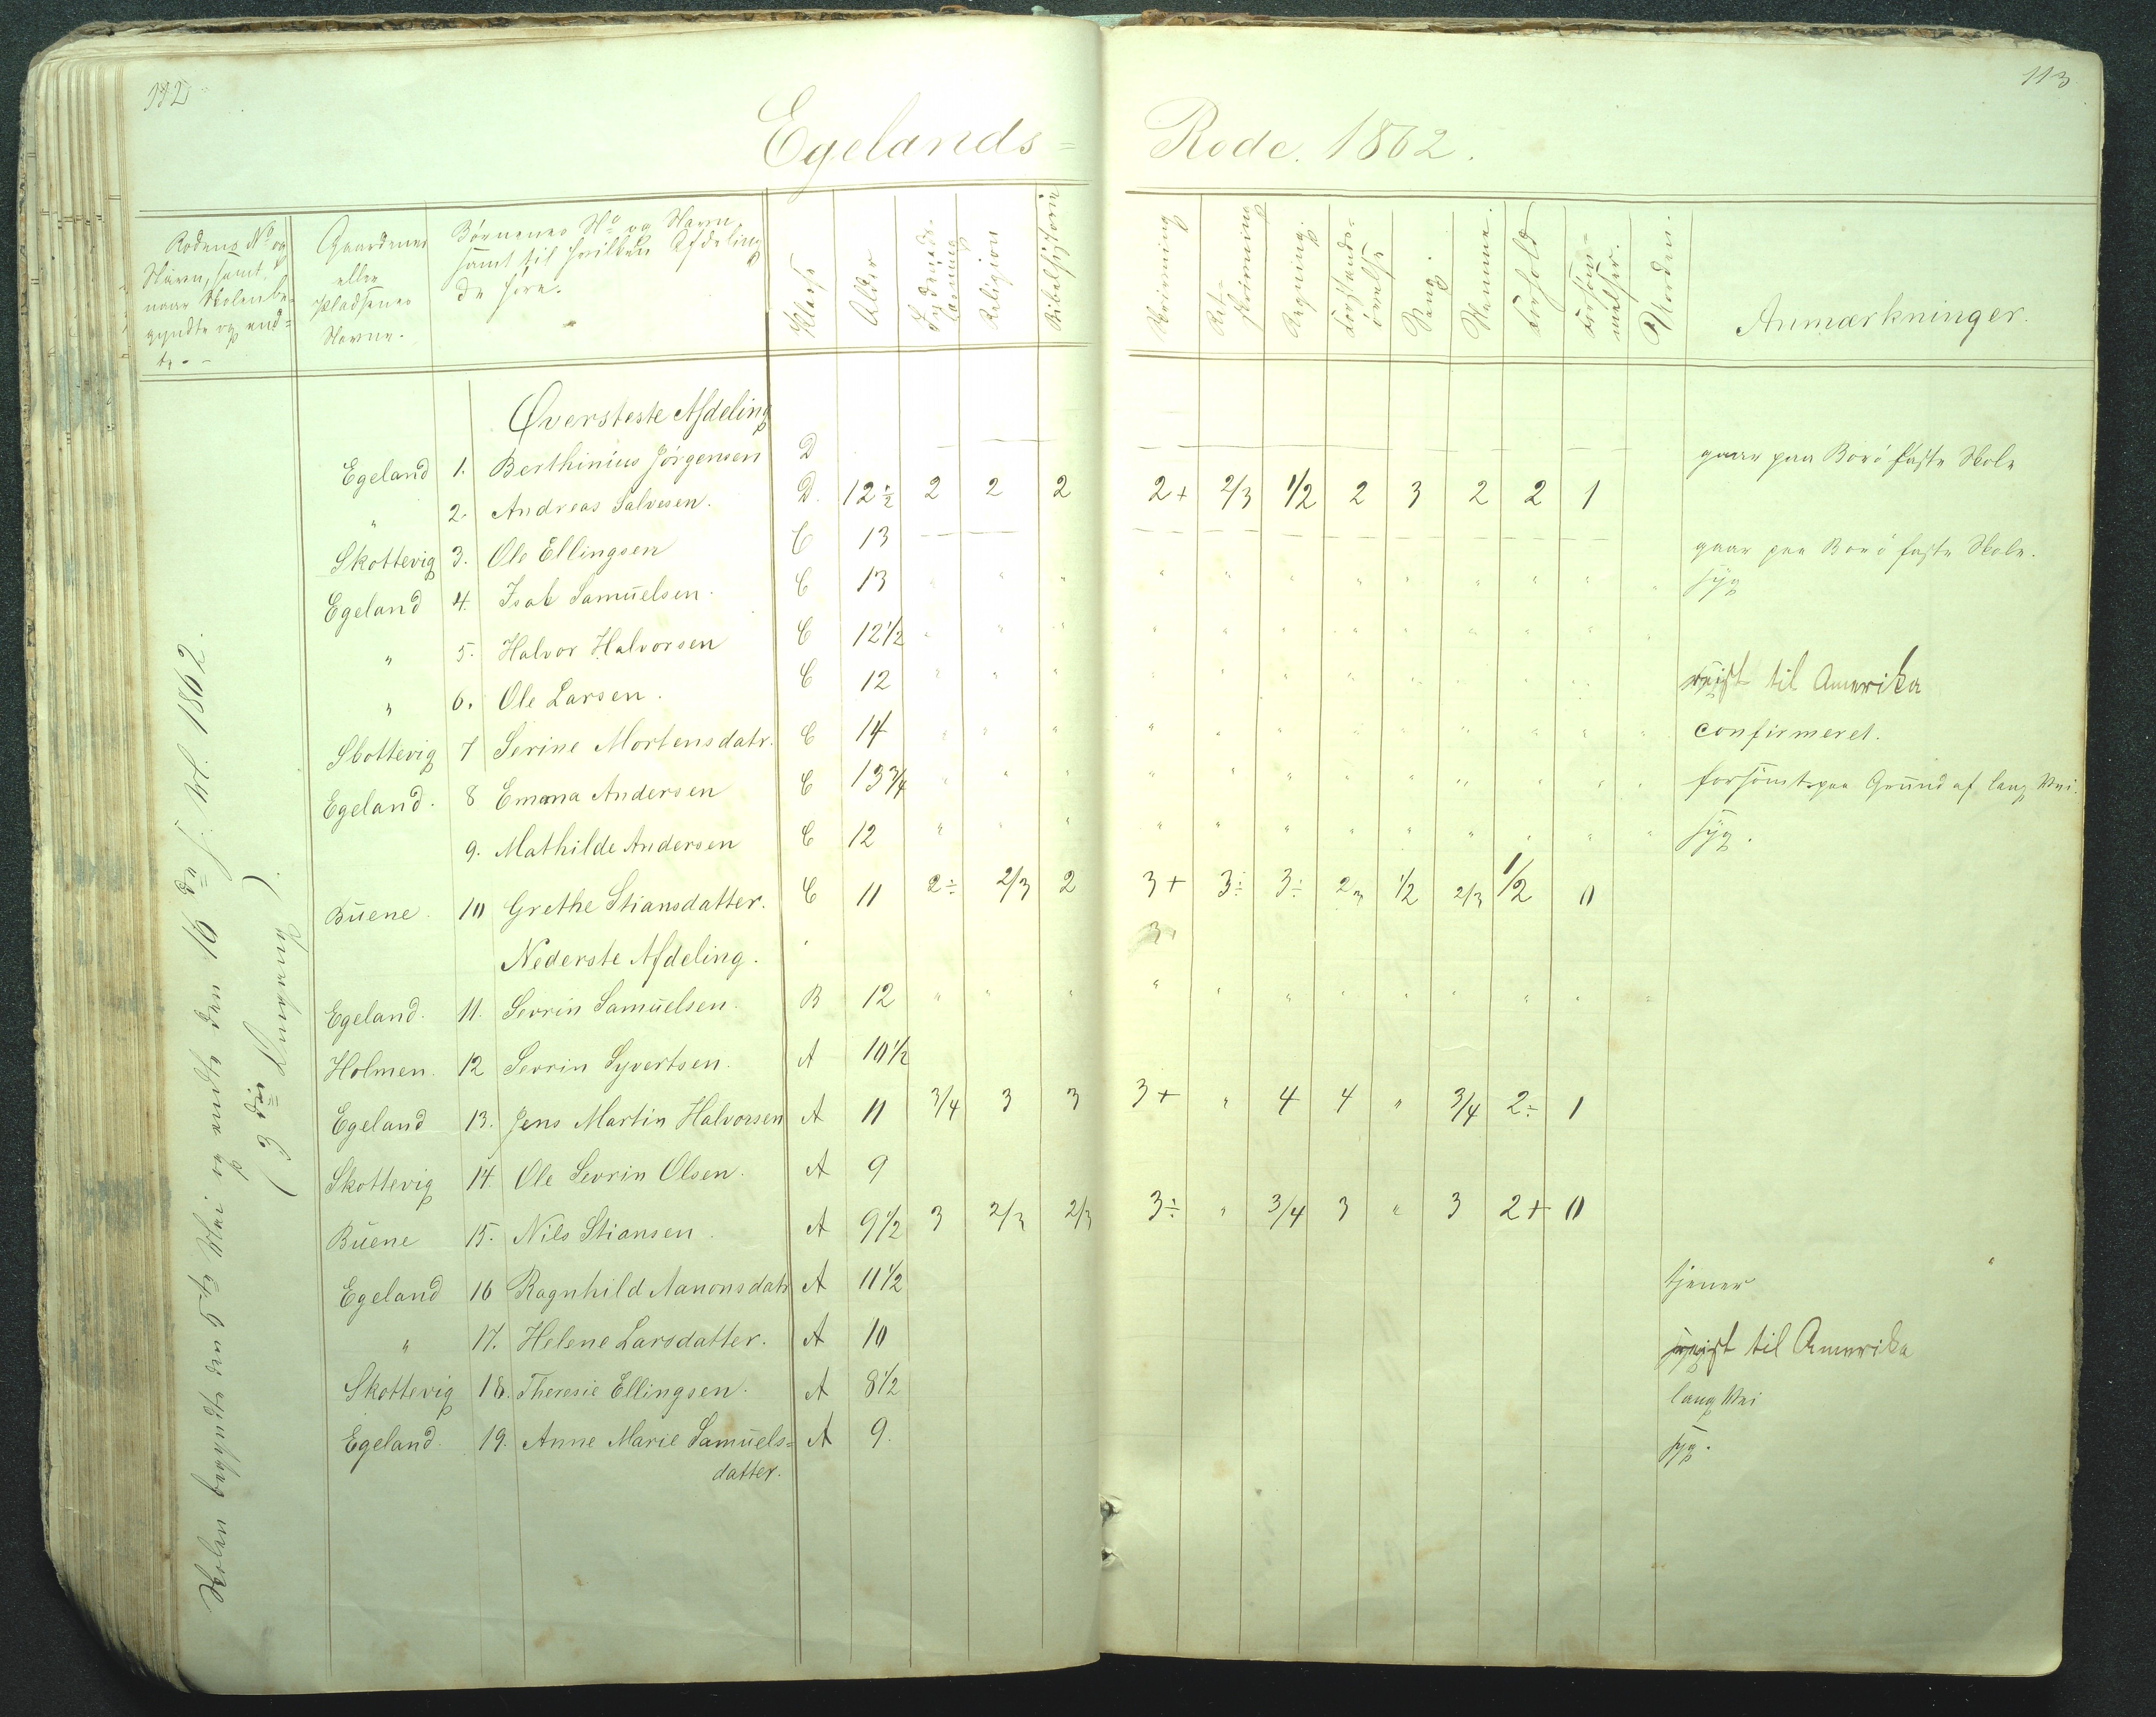 112
113
Egelands= Rode. 1862.
Rodens No og Navn, samt naar Skolen begyndte og endte
Gaardenes eller Pladsenes Navne.
Børnenes No og Navn, samt til hvilken Afdeling de høre.
Klasse
Alder
Religion
Bibelhistorie
Skrivning
Retskrivning
Regning.
Forstandsøvelse
Sang.
Nemme.
Forhold
Forsømmelser.
Anmærkninger.
Skolen begyndte den 5te Mai og endte den 16de s. M. 1862.
(3die Omgang).
Øversteste Afdeling
Egeland 1. Berthinius Jørgensen D — gaar paa Borø faste Skole
" 2. Andreas Salvesen. D. 12½ 2 2 2 2+ 2/3 1/2 2 3 2 2 1
Skottevig 3. Ole Ellingsen C 13 — gaar paa Borø faste Skole.
Egeland 4. Isak Samuelsen. C 13 " syg
" 5. Halvor Halvorsen C 12 1/2 "
" 6. Ole Larsen. C 12 " reist til Amerika
Skottevig 7 Serine Mortensdatr. C 14 " confirmeret.
Egeland. 8 Emma Andersen C 13 3/4 " forsømt paa Grund af lang Vei.
9. Mathilde Andersen C 12 " syg.
Buene. 10 Grethe Stiansdatter. C 11 2÷ 2/3 2 3+ 3÷ 3÷ 2/3 1/2 2/3 1/2 0
Nederste Afdeling.
Egeland. 11. Sevrin Samuelsen. B 12 "
Holmen. 12 Sevrin Syvertsen. A 10 1/2
Egeland 13. Jens Martin Halvorsen A 11 3/4 3 3 3+ " 4 4 " 3/4 2÷ 1
Skottevig 14 Ole Sevrin Olsen. A 9
Buene 15. Nils Stiansen. A 9 1/2 3 2/3 2/3 3÷ " 3/4 3 " 3 2+ 0
Egeland 16 Ragnhild Aanonsdatr A 11 1/2 tjener
" 17. Helene Larsdatter. A 10 reist til Amerika
Skottevig 18. Theresie Ellingsen. A 8 1/2 lang Vei
Egeland. 19. Anne Marie Samuels= A 9. syg.
datter.